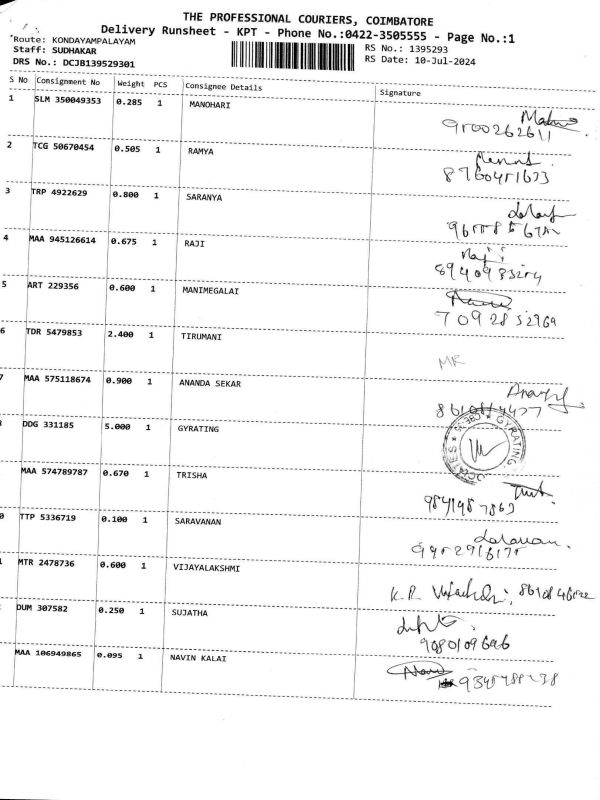 THE PROFESSIONAL COURIERS, COIMBATORE
Delivery Runsheet - KPT - Phone No.:0422-3505555 - Page No.:1
Route: KONDAYAMPALAYAM RS No.: 1395293
Staff: SUDHAKAR RS Date: 10-Jul-2024
DRS No.: DCJB139529301
S No Consignment No Weight PCS Consignee Details Signature
1 SLM 350049353 0.285 1 MANOHARI
9500262611
2 TCG 50670454 0.505 1 RAMYA
3 TRP 4922629 0.800 1 SARANYA
4 MAA 945126614 0.675 1 RAJI
Raji
5 ART 229356 0.600 1 MANIMEGALAI
7092852969
6 TDR 5479853 2.400 1 TIRUMANI
MR
7 MAA 575118674 0.900 1 ANANDA SEKAR
DDG 331185 5.000 1 GYRATING
GYRATING
MAA 574789787 0.670 1 TRISHA
0 TTP 5336719 0.100 1 SARAVANAN
MTR 2478736 0.600 1 VIJAYALAKSHMI
K.R.
DUM 307582 0.250 1 SUJATHA
9080109696
MAA 106949865 0.095 1 NAVIN KALAI